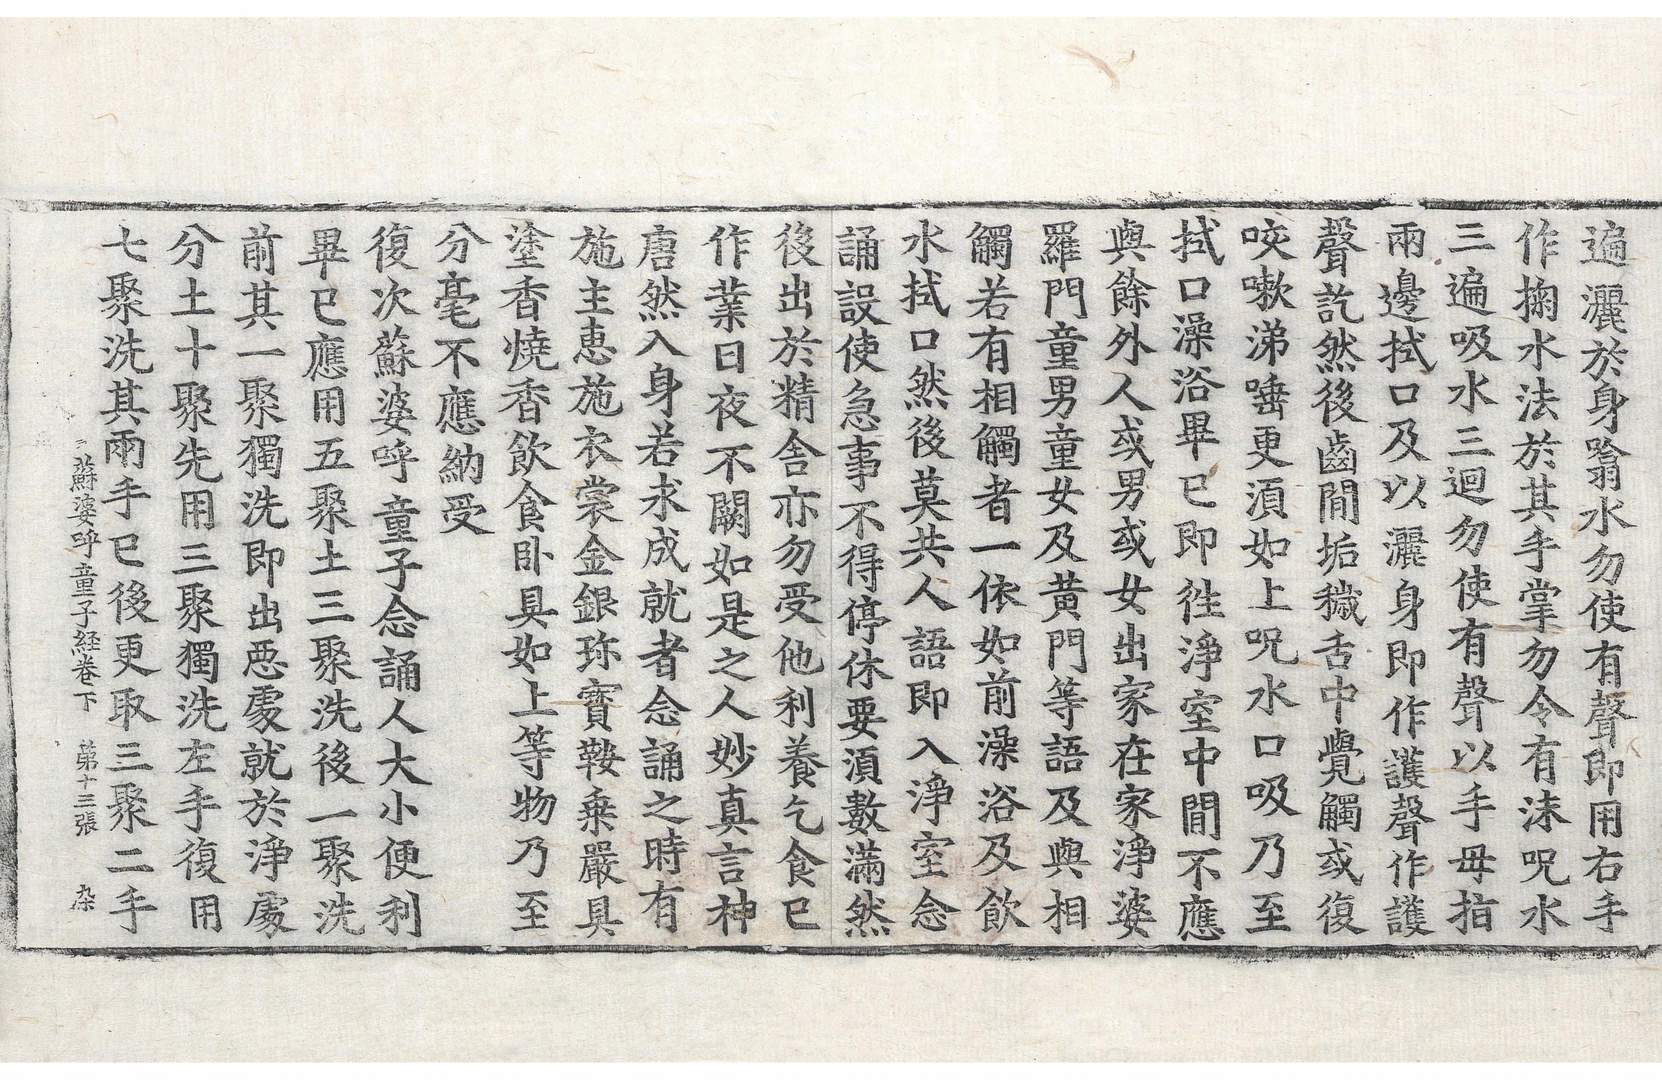 遍灑於身噏水勿使有聲即用右手
作掬水法於其手掌勿令有沫呪水
三遍吸水三迴勿使有聲以手母指
兩邊拭口及以灑身即作護聲作護
聲訖然後齒閒垢穢舌中覺觸或復
咬嗽涕唾更湏如上呪水口吸乃至
拭口澡浴畢已即徃淨室中閒不應
與餘外人或男或女出家在家淨婆
羅門童男童女及黄門等語及與相
觸若有相觸者一依如前澡浴及飲
水拭口然後莫共人語即入淨室念
誦設使急事不得停休要湏數滿然
後出於精舎亦勿受他利養乞食已
作業日夜不闕如是之人妙真言神
唐然入身若求成就者念誦之時有
施主恵施衣裳金銀珎寳鞍乗嚴具
塗香燒香飲食卧具如上等物乃至
分毫不應納受
復次蘇婆呼童子念誦人大小便利
畢已應用五聚土三聚洗後一聚洗
前其一聚獨洗即出悪處就於淨處
分土十聚先用三聚獨洗左手復用
七聚洗其兩手已後更取三聚二手
蘇婆呼童子経卷下　第十三張